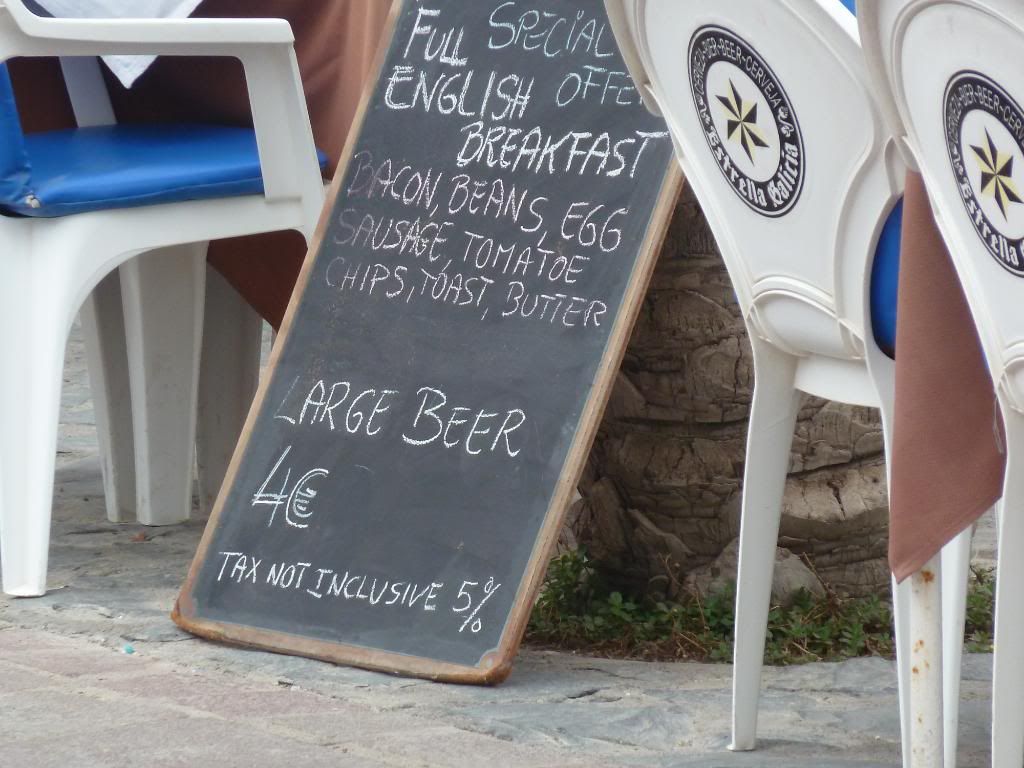 FULL SPECIAL
ENGLISH OFFE
BREAKFAST
BACON, BEANS, EGG
SAUSAGE, TOMATOE
CHIPS, TOAST, BUTTER
LARGE BEER
4€
TAX NOT INCLUSIVE 5%
BIER-BEER-CERVEZA
Estrella Galicia
BIER-BEER-CER
Estrella G